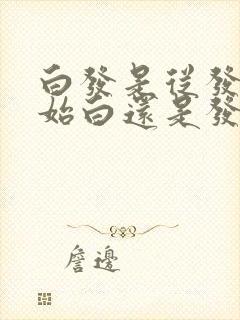 白發是從發
始白還是發
詹邊